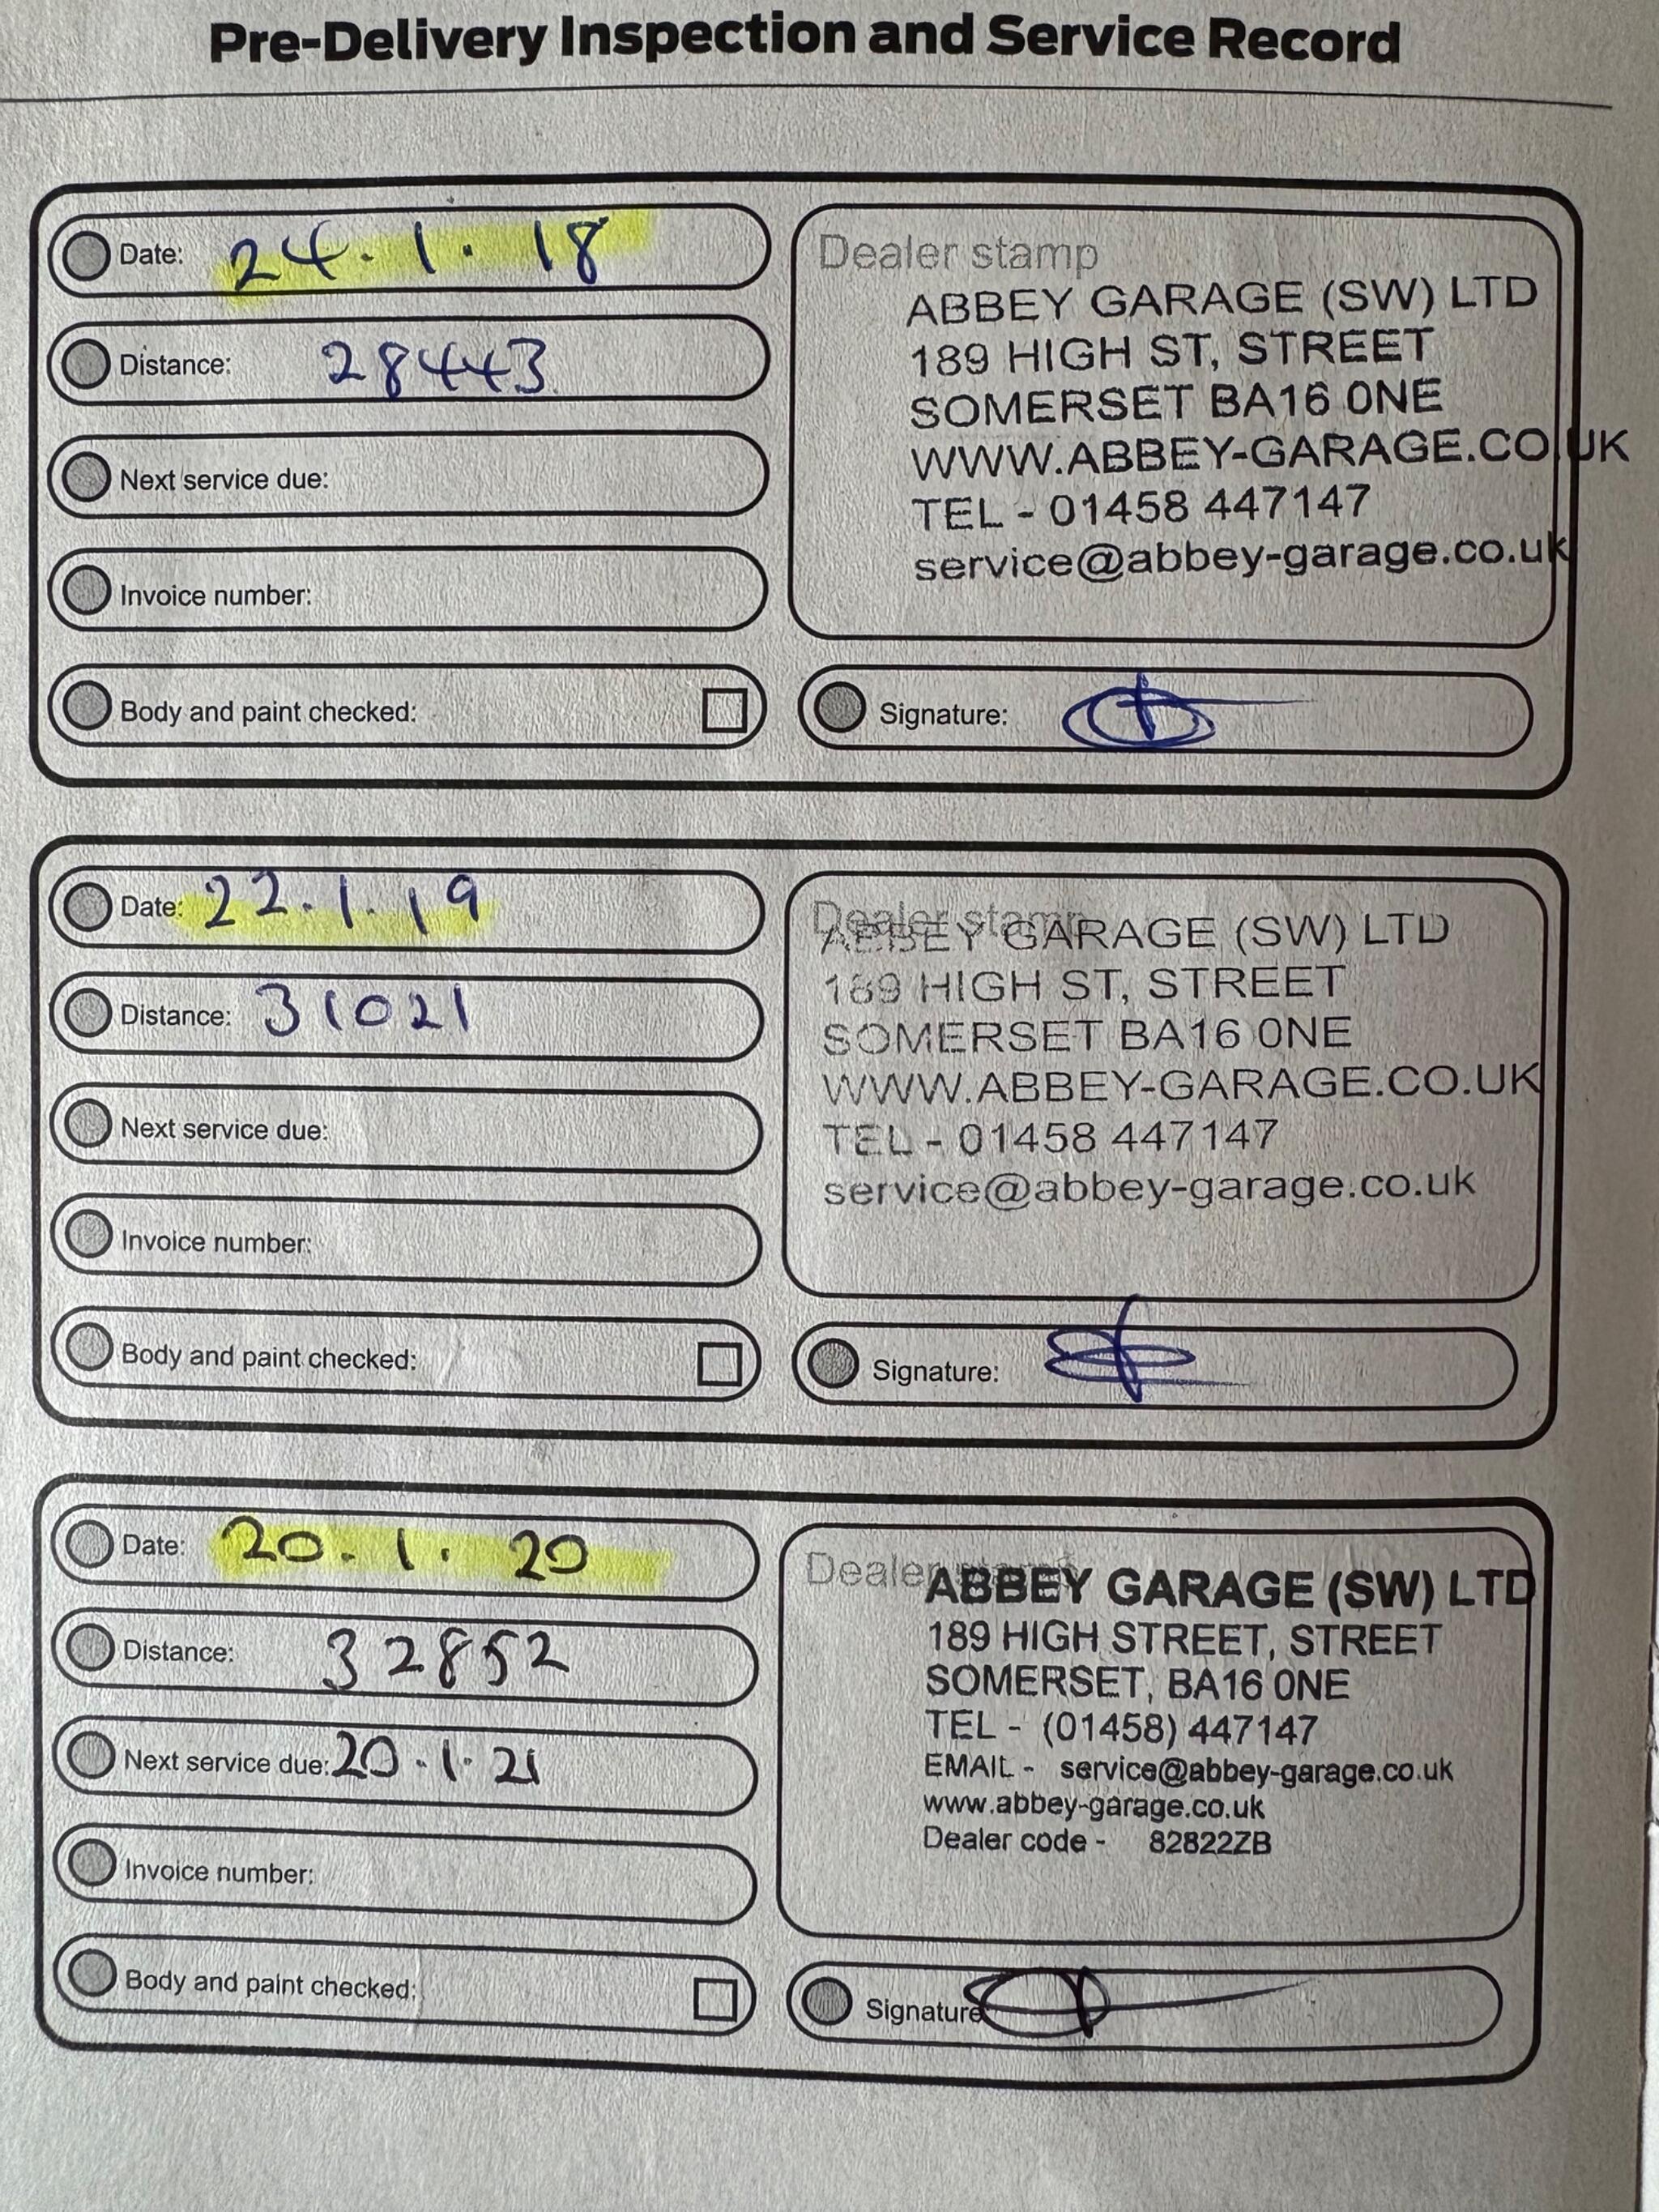 Pre-Delivery Inspection and Service Record
Date: 24.1.18
Distance: 28443
Next service due:
Invoice number:
Body and paint checked:
Dealer stamp
ABBEY GARAGE (SW) LTD
189 HIGH ST, STREET
SOMERSET BA16 0NE
WWW.ABBEY-GARAGE.CO.UK
TEL - 01458 447147
service@abbey-garage.co.uk
Signature:
Date: 22.1.19
Distance: 31021
Next service due:
Invoice number:
Body and paint checked:
Dealer stamp
ABBEY GARAGE (SW) LTD
189 HIGH ST, STREET
SOMERSET BA16 0NE
WWW.ABBEY-GARAGE.CO.UK
TEL - 01458 447147
service@abbey-garage.co.uk
Signature:
Date: 20.1.20
Distance: 32852
Next service due: 20.1.21
Invoice number:
Body and paint checked:
Dealer stamp
ABBEY GARAGE (SW) LTD
189 HIGH STREET, STREET
SOMERSET, BA16 0NE
TEL - (01458) 447147
EMAIL - service@abbey-garage.co.uk
www.abbey-garage.co.uk
Dealer code - 82822ZB
Signature